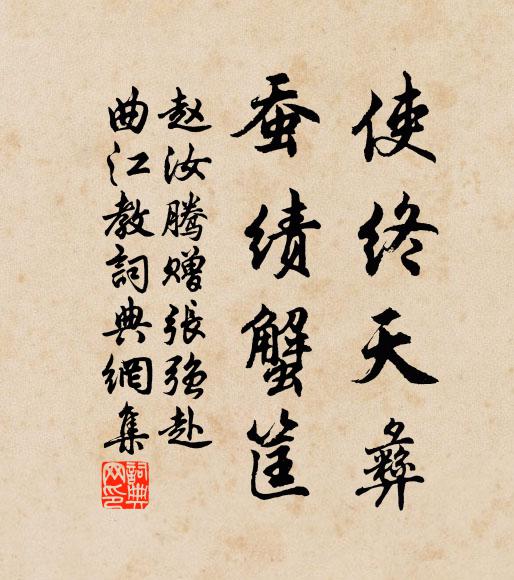 使终天彝
蚕绩蟹筐
赵汝腾赠張强赴
曲江教詞典網集
詞典
网印